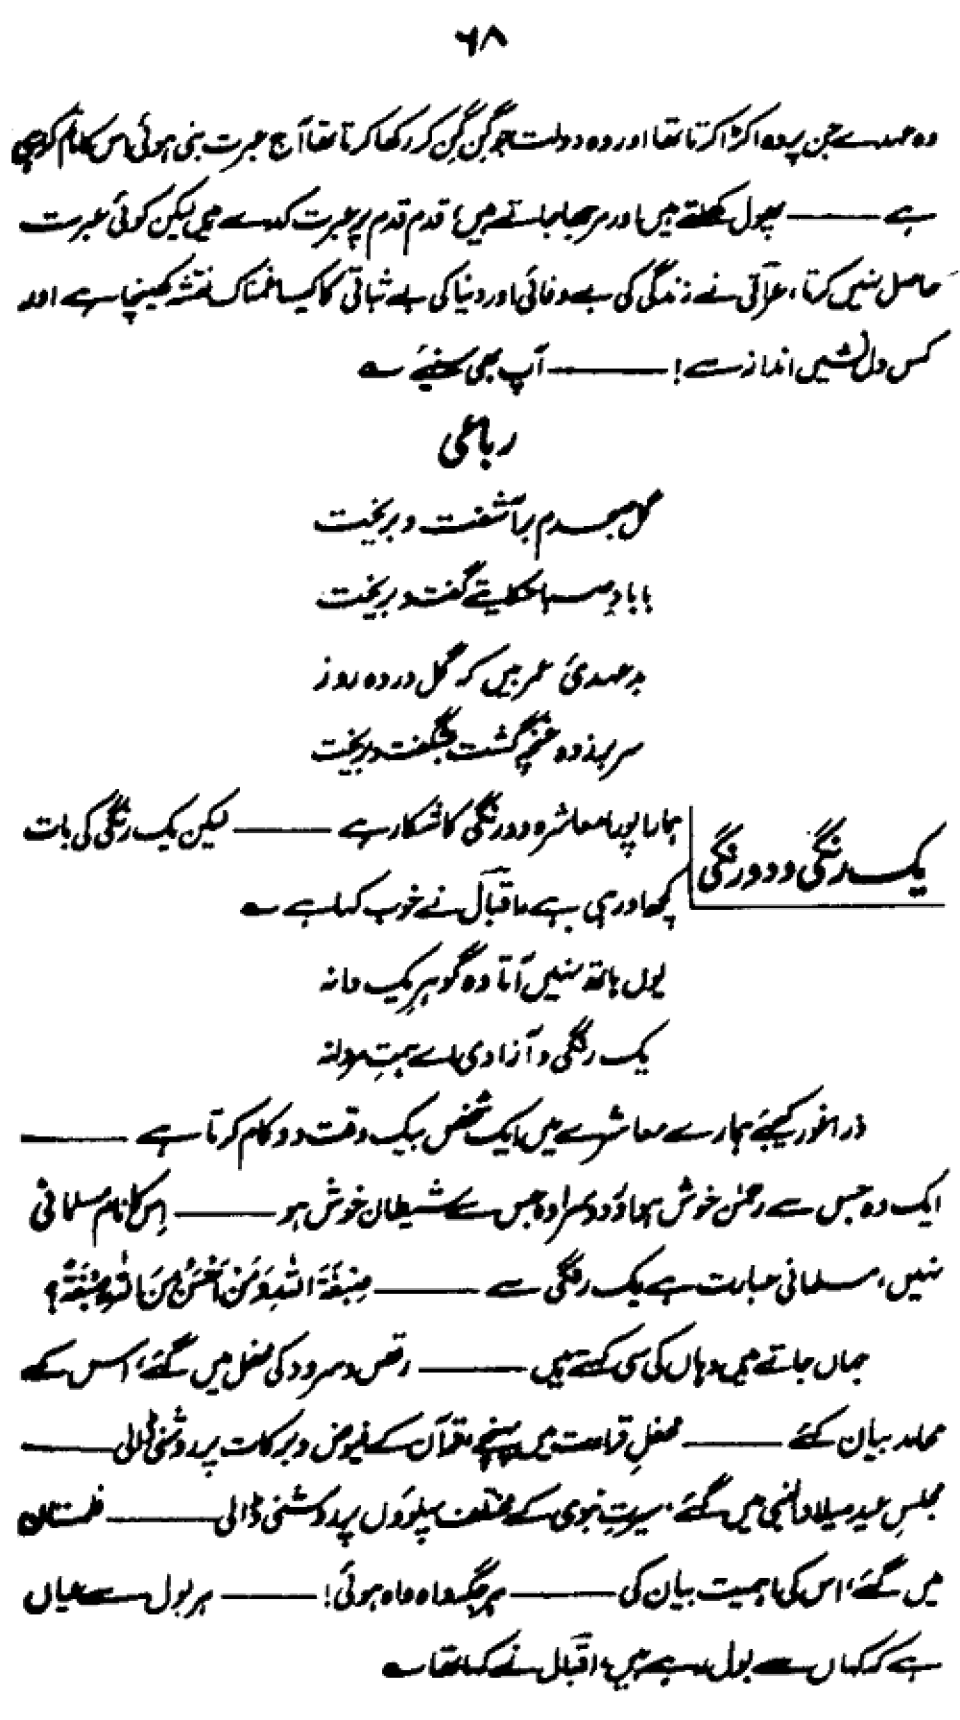 ۶۸
وہ عہدے جن پر وہ اکڑا کرتا تھا اور وہ دولت جو گِن گِن کر رکھا کرتا تھا آج عبرت بنی ہوئی اس کا نام
ہے ——— پھول کھلتے ہیں اور مرجھا جاتے ہیں؛ قدم قدم پر عبرت کدے ہیں لیکن کوئی عبرت
حاصل نہیں کرتا، عراقی نے زندگی کی بے وفائی اور دنیا کی بے ثباتی کا کیسا غمناک نقشہ کھینچا ہے اور
کس دل نشیں انداز سے! ——— آپ بھی سنیئے ؎
رباعی
گل صبحدم برآشفت و بریخت
با بادِ صبا حکایتے گفت و بریخت
بدعہدیٔ عمر بیں کہ گل در دہ روز
سر برزدہ غنچہ گشت بشگفت و بریخت
یک رنگی و دو رنگی
ہمارا پورا معاشرہ دو رنگی کا شکار ہے ——— لیکن یک رنگی کی بات
کچھ اور ہی ہے، اقبالؔ نے خوب کہا ہے ؎
یوں ہاتھ نہیں آتا وہ گوہرِ یک دانہ
یک رنگی و آزادی اے ہمتِ مردانہ
ذرا غور کیجئے ہمارے معاشرے میں ایک شخص بیک وقت دو کام کرتا ہے ———
ایک وہ جس سے رحمٰن خوش ہو اور دوسرا وہ جس سے شیطان خوش ہو ——— اِس کا نام مسلمانی
نہیں، مسلمانی عبارت ہے یک رنگی سے ——— صِبْغَةَ اللّٰهِ وَمَنْ اَحْسَنُ مِنَ اللّٰهِ صِبْغَةً؟
جہاں جاتے ہیں وہاں کی سی کہتے ہیں ——— رقص و سرود کی محفل میں گئے، اس کے
محامد بیان کئے ——— محفلِ قرأت میں پہنچے، قرآن کے فیوض و برکات پر روشنی ڈالی ———
مجلسِ عید میلاد النبی میں گئے، سیرتِ نبوی کے مختلف پہلوؤں پر روشنی ڈالی ——— فلمستان
میں گئے، اس کی اہمیت بیان کی ——— ہر جگہ واہ واہ ہوئی! ——— ہر بول سے عیاں
ہے کہ کہاں سے بول رہے ہیں؛ اقبالؔ نے کہا تھا ؎